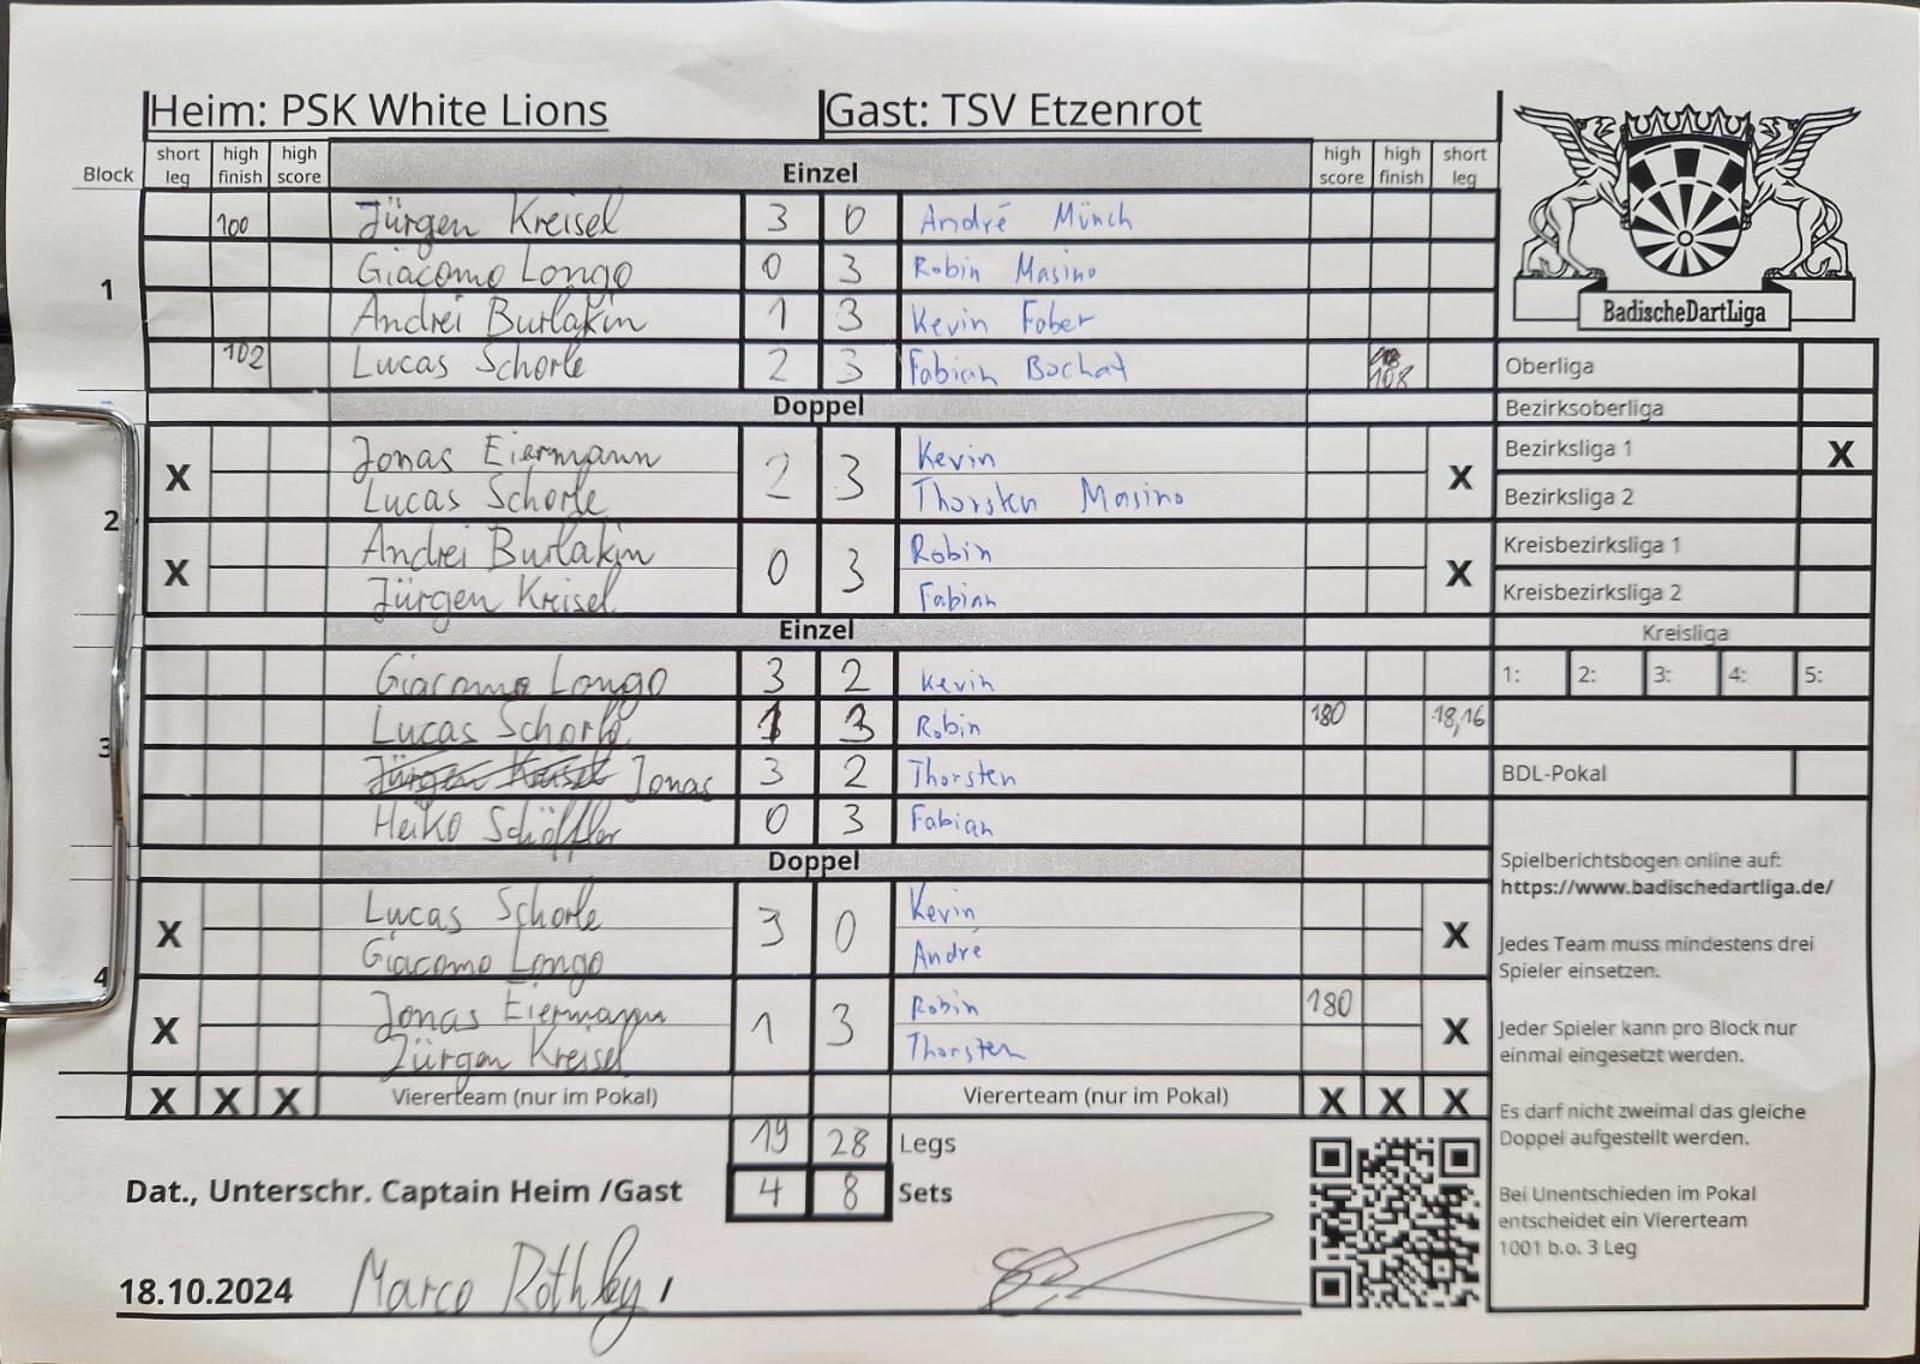 Heim: PSK White Lions Gast: TSV Etzenrot
Block short leg high finish high score Einzel high score high finish short leg
1
100 Jürgen Kreisel 3 0 André Münch
Giacomo Longo 0 3 Robin Masino
Andrei Burlakin 1 3 Kevin Faber
102 Lucas Schorle 2 3 Fabian Bochat 108
Doppel
2
X Jonas Eiermann 2 3 Kevin X
Lucas Schorle Thorsten Masino
X Andrei Burlakin 0 3 Robin X
Jürgen Kreisel Fabian
Einzel
3
Giacomo Longo 3 2 Kevin
Lucas Schorle 1 3 Robin 180 18,16
Jürgen Kreisel Jonas 3 2 Thorsten
Heiko Schöffler 0 3 Fabian
Doppel
4
X Lucas Schorle 3 0 Kevin X
Giacomo Longo André
X Jonas Eiermann 1 3 Robin 180 X
Jürgen Kreisel Thorsten
X X X Viererteam (nur im Pokal) Viererteam (nur im Pokal) X X X
19 28 Legs
Dat., Unterschr. Captain Heim /Gast 4 8 Sets
18.10.2024 Marco Rothley
BadischeDartLiga
Oberliga
Bezirksoberliga
Bezirksliga 1 X
Bezirksliga 2
Kreisbezirksliga 1
Kreisbezirksliga 2
Kreisliga
1: 2: 3: 4: 5:
BDL-Pokal
Spielberichtsbogen online auf:
https://www.badischedartliga.de/
Jedes Team muss mindestens drei
Spieler einsetzen.
Jeder Spieler kann pro Block nur
einmal eingesetzt werden.
Es darf nicht zweimal das gleiche
Doppel aufgestellt werden.
Bei Unentschieden im Pokal
entscheidet ein Viererteam
1001 b.o. 3 Leg